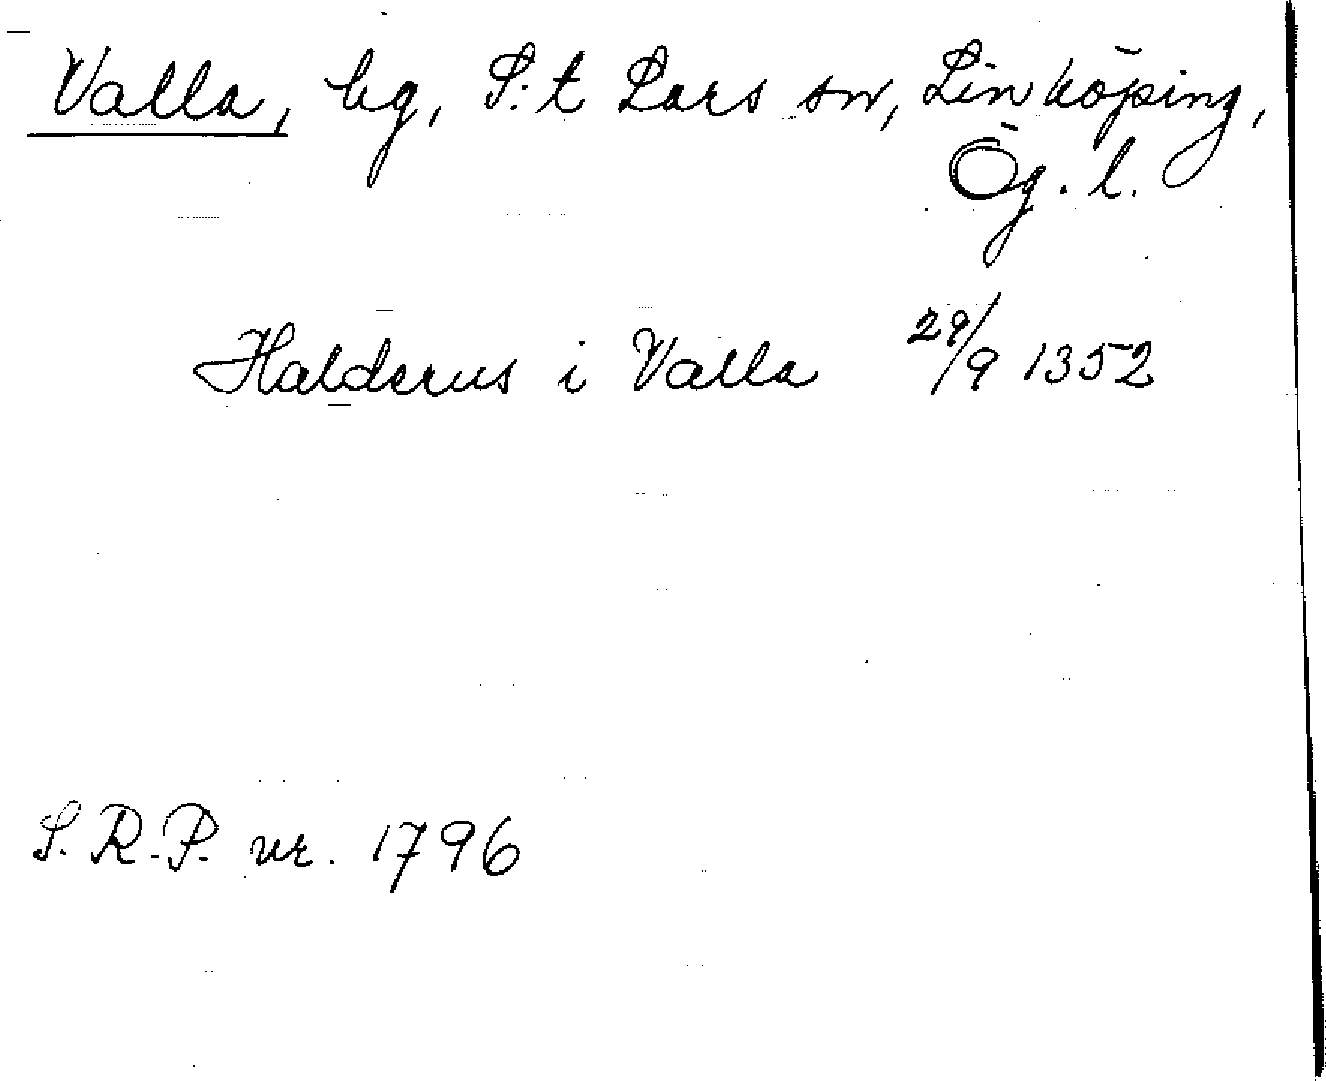 Valla, by, S:t Lars sn, Linköping,
Ög. l.
Halderus i Valla 29/9 1352
S.R.P. nr. 1796